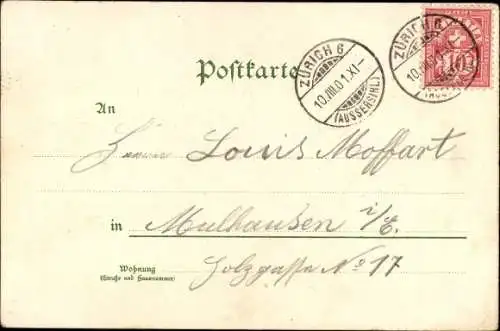 ZÜRICH 6
10.III.01.XI-
(AUSSERSIHL)
ZÜRICH 6
10
Postkarte
An
Herrn Louis Moffart
in Mulhausen i/E.
Wohnung
(Straße und Hausnummer)
Holzgasse No 17